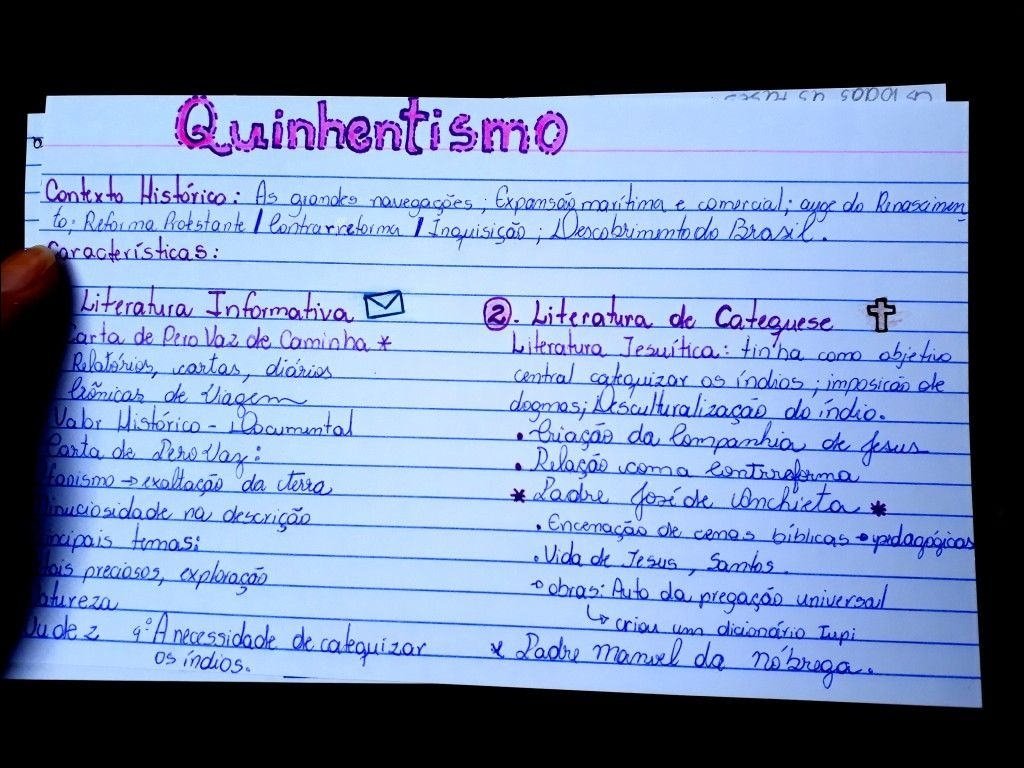 Quinhentismo
Contexto Histórico: As grandes navegações; Expansão marítima e comercial; auge do Renascimen
to; Reforma Protestante / Contrarreforma / Inquisição; Descobrimento do Brasil.
aracterísticas:
Literatura Informativa
Carta de Pero Vaz de Caminha *
Relatórios, cartas, diários
Crônicas de viagem
Valor Histórico - Documental
Carta de Pero Vaz:
fanismo → exaltação da terra
inuciosidade na descrição
incipais temas:
tais preciosos, exploração
atureza
de 2 9º A necessidade de catequizar
os índios.
2. Literatura de Catequese
Literatura Jesuítica: tinha como objetivo
central catequizar os índios; imposição de
dogmas; Desculturalização do índio.
• Criação da Companhia de Jesus
• Relação com a contrreforma
* Padre José de Anchieta *
• Encenação de cenas bíblicas → pedagógicas
• Vida de Jesus, Santos.
→ obras: Auto da pregação universal
↳ criou um dicionário Tupi
* Padre manuel da nóbrega.